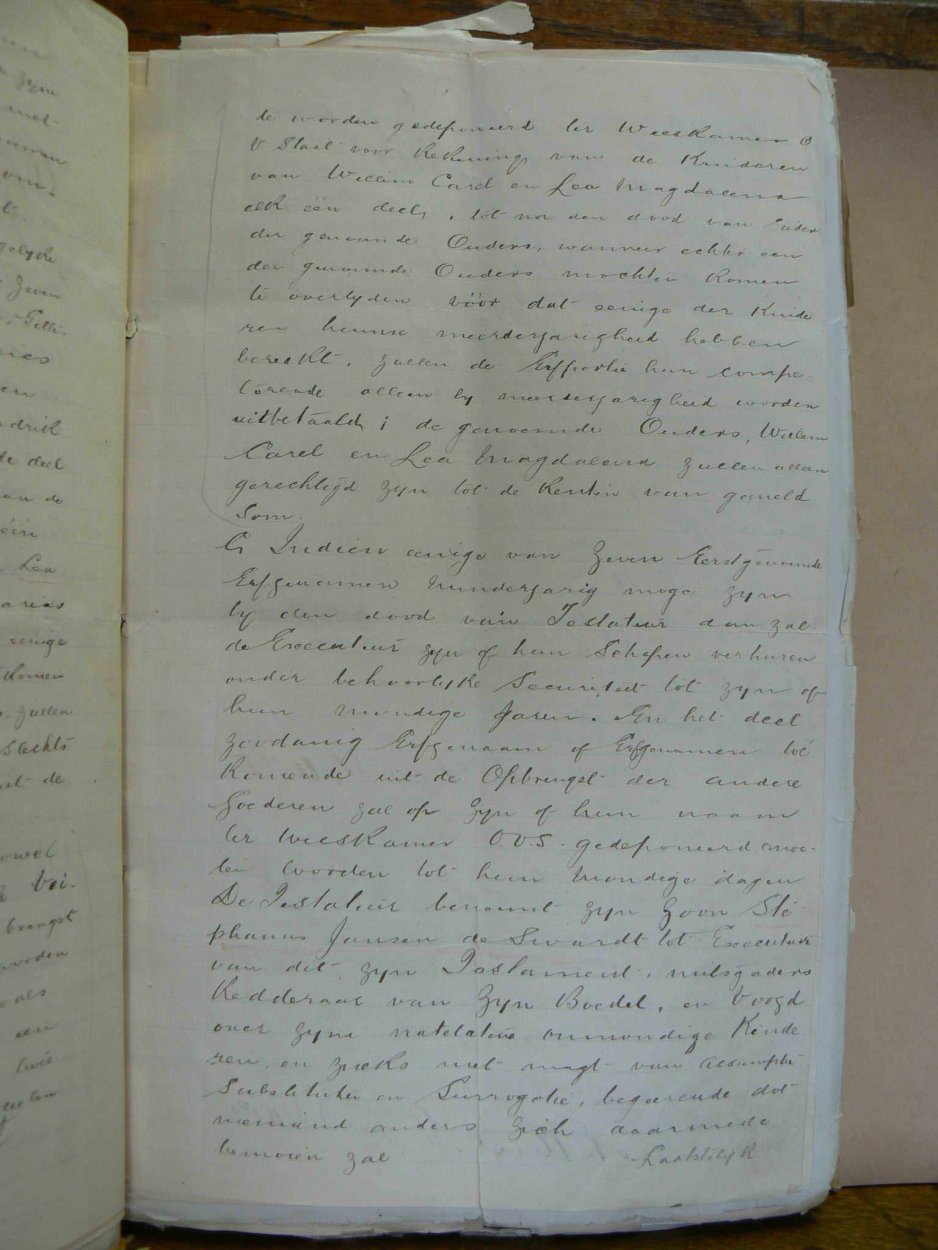 te worden gedeponeerd ter Weeskamer O
V Staat voor Rekening van de Kinderen
van Willem Carel en Lea Magdalena
elk één deel, tot na den dood van ieder
der genoemde Ouders, wanneer echter een
der genoemde Ouders mochten komen
te overlyden vóór dat eenige der Kinde
ren hunne meerderjarigheid hebben
bereikt, zullen de Erfportie hun compe-
terende alleen by meerderjarigheid worden
uitbetaald; de genoemde Ouders, Willem
Carel en Lea Magdalena zullen alleen
gerechtigd zyn tot de Renten van gemeld
Som.
Indien eenige van Zeven Eerstgenoemde
Erfgenamen minderjarig moge zyn
by den dood van Testateur dan zal
de Executeur zyn of hun Schapen verhuren
onder behoorlyke Securiteit tot zyn of
hun mondige Jaren. En het deel
zoodanig Erfgenaam of Erfgenamen toe
Komende uit de Opbrengst der andere
Goederen zal op Zyn of hun naam
ter Weeskamer O.V.S. gedeponeerd moe-
ten worden tot hun mondige dagen
De Testateur benoemt zyn Zoon Ste
phanus Jansen de Swardt tot Executeur
van dit zyn Testament, mitsgaders
Redderaar van Zyn Boedel, en Voogd
over zyne natelatene onmondige Kinde
ren, en zulks met magt van assumptie
Substitutie en Surrogatie, begeerende dat
niemand anders zich daarmede
bemoeien zal
Laatstelyk
zyn
met-
om-
gelyke
Zeven
en
drik
de deel
an de
één
Lea
eenige
Komen
zullen
slechts
uit de
brengst
worden
als
een
twee